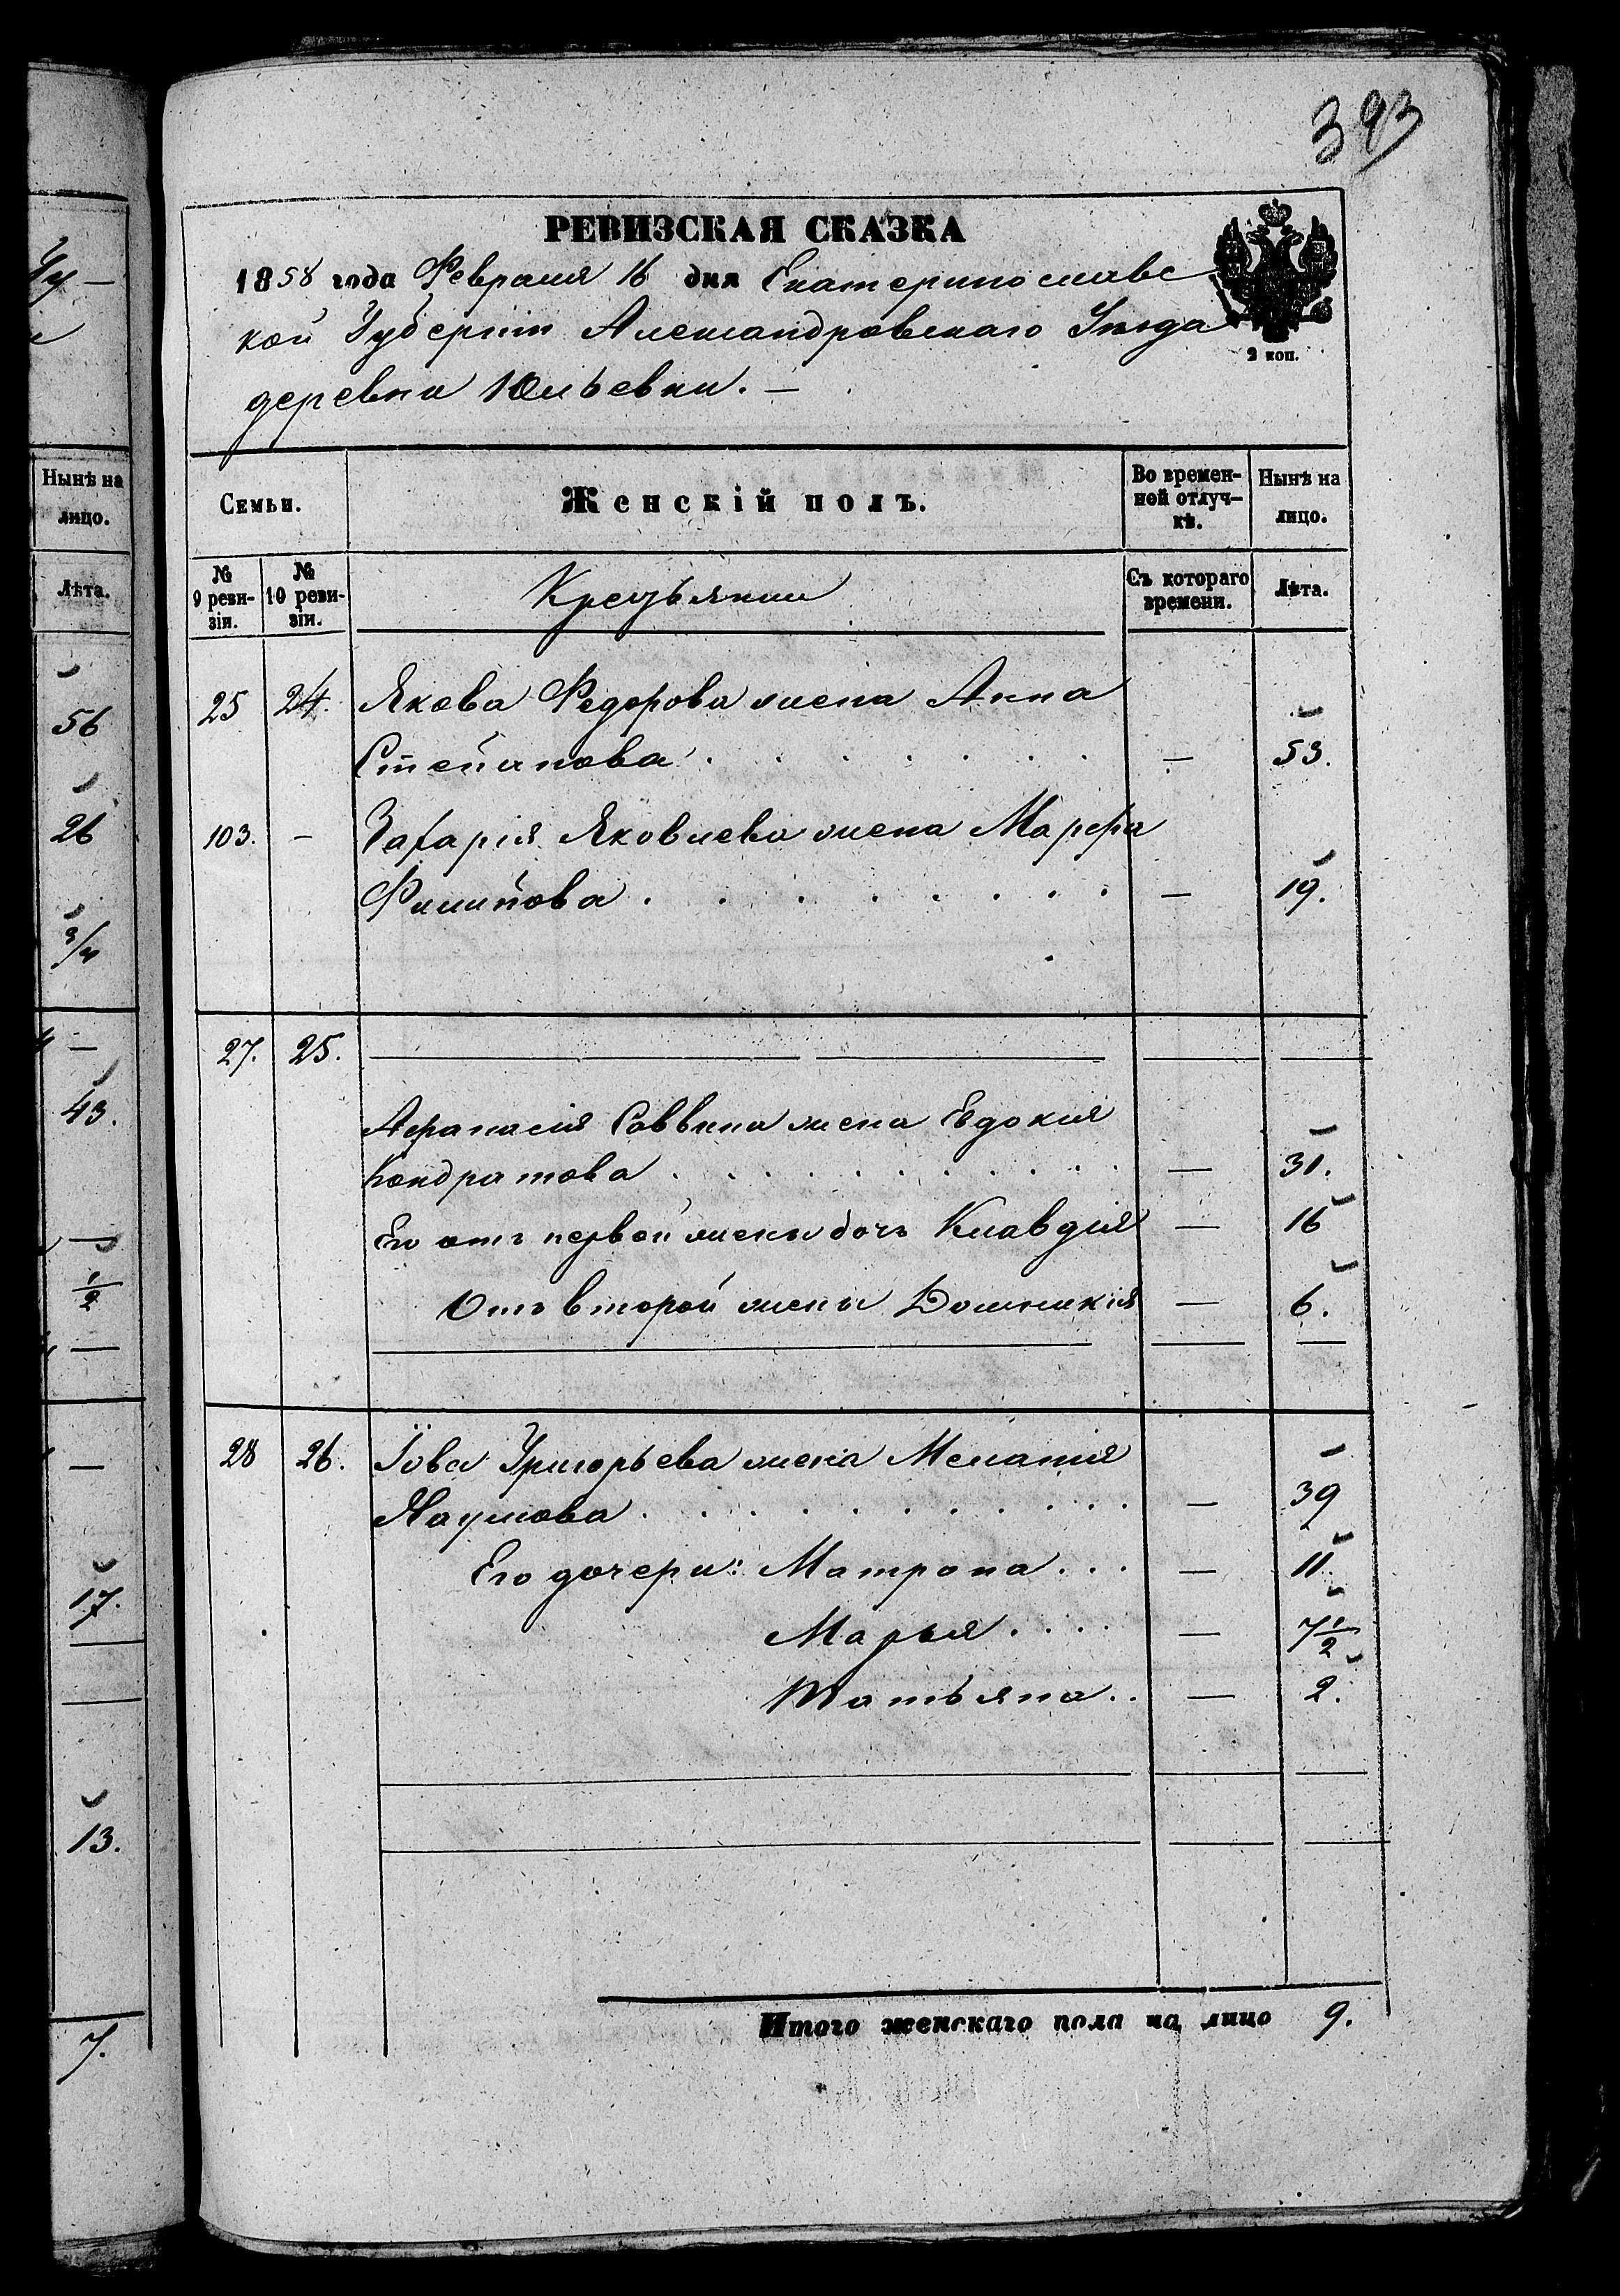 393
РЕВИЗСКАЯ СКАЗКА
1858 года Февраля 16 дня Екатеринославс
кой Губерніи Александровскаго Уезда
деревни Юльевки. —
2 коп.
Семьи. Женскій полъ. Во времен- Нынѣ на
ной отлуч- лицо.
кѣ.
№ 9 реви-зіи. № 10 реви-зіи. Крестьянки Съ котораго времени. Лѣта.
25 24. Якова Федорова жена Анна
Степанова . . . . . . . — 53.
103. — Захарія Яковлева жена Марфа
Филипова . . . . . . . . — 19.
27. 25. — — — —
Афанасія Саввина жена Евдокія
Кондратова . . . . . . . . . . — 31.
Его отъ первой жены дочь Клавдія — 16
Отъ второй жены Домникія — 6.
28 26. Іова Григорьева жена Меланія
Наумова . . . . . . . . . . — 39
Его дочери: Матрона . . . — 11.
Марья . . . . — 7 1/2
Татьяна . . — 2.
Итого женскаго пола на лицо 9.
Нынѣ на
лицо.
Лѣта.
56
26
3/4
43.
1/2
17.
13.
7.